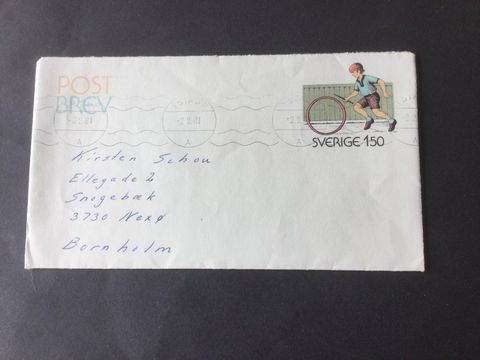 POST
BREV
-2.2.81
A
-2.2.81
A
SVERIGE 150
Kirsten Schou
Ellegade 2
Snogebæk
3730 Nexø
Bornholm